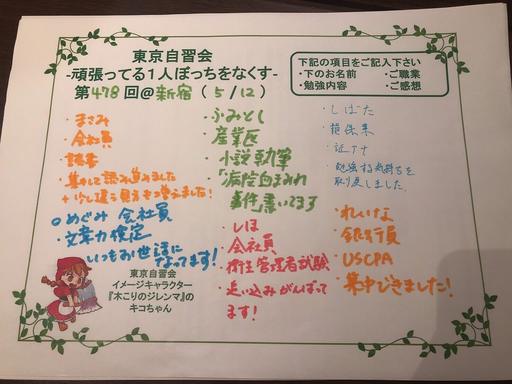 東京自習会
-頑張ってる1人ぼっちをなくす-
第478回@新宿(5/12)
下記の項目をご記入下さい
・下のお名前 ・ご職業
・勉強内容 ・ご感想
・まさみ
・会社員
・読書
・集中して読み進めました
+少し違う見方も増えました!
○めぐみ 会社員
・文章力検定
いつもお世話に
なってます!
・ふみとし
・産業医
・小説執筆
「病院血まみれ
事件」書いてます
・しほ
・会社員
・衛生管理者試験
・追い込みがんばって
ます!
・しばた
・証アナ
・勉強する気持ちを
取り戻しました。
・れいな
・銀行員
・USCPA
・集中できました!
東京自習会
イメージキャラクター
『木こりのジレンマ』の
キコちゃん